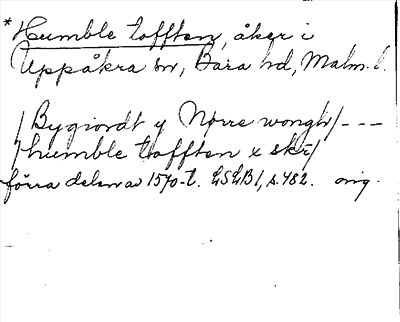 *Humble tofften, åker i
Uppåkra sn, Bara hd, Malm. l.
/Bygiordt y Nørre wongh/ ---
/humble tofften x skr/
förra delen av 1570-t. LSLB I, s. 482. orig.